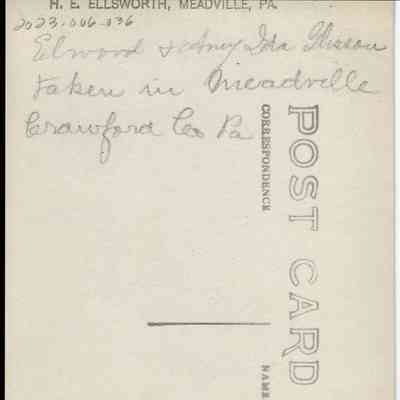 H. E. ELLSWORTH, MEADVILLE, PA.
2023.006.036
Elwood & Amy Ida
taken in Meadville
Crawford Co Pa
CORRESPONDENCE
POST CARD
NAME